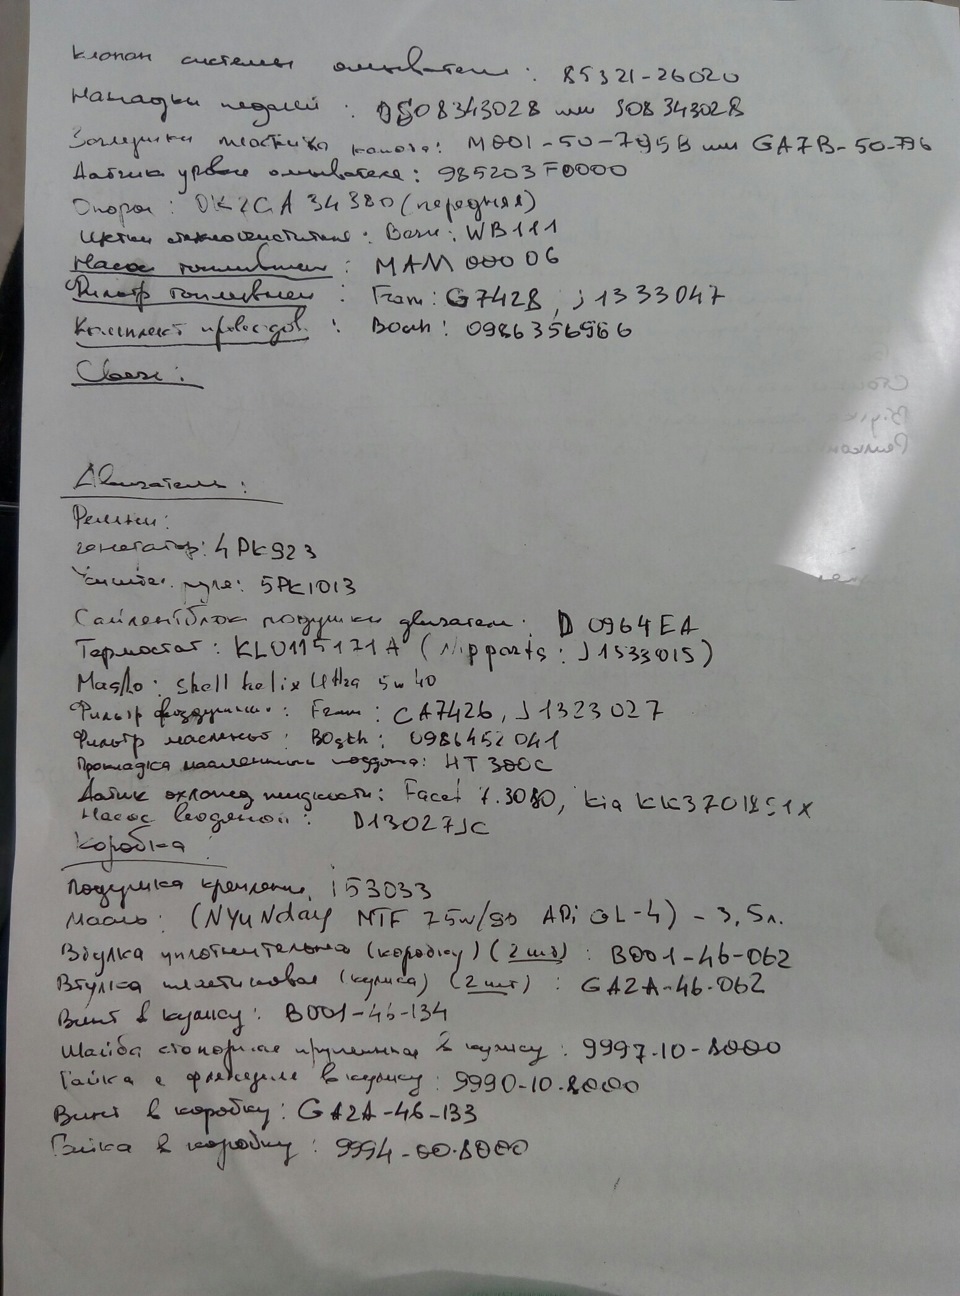 Клапан системы омывателя : 85321-26020
Накладки педалей : 0S08343028 или S08343028
Защелки пластика капота: M001-50-795B или GA7B-50-796
Датчик уровня омывателя : 985203F0000
Опора : 0K2CA 34380 (передняя)
Щетки стеклоочистителя : Bosh : WB111
Насос топливный : MAM 00006
Фильтр топливный : Fram : G7428, J1333047
Комплект проводов : Bosh : 0986356966
Свечи :
Двигатель :
Ремни:
генератор: 4PK923
Усилител. руля: 5PK1013
Сайлентблок подушки двигателя : D 0964EA
Термостат : KL0115171A ( Nipparts : J1533015 )
Масло : Shell helix Ultra 5w40
Фильтр воздушный : Fram : CA7426, J1323027
Фильтр масленый : Bosth : 0986452041
Прокладка масленного поддона: HT 300C
Датчик охлажд жидкости : Facet 7.3080, Kia KK370
Насос водяной : D13027JC
Коробка :
Подушка крепления i53033
Масло : (NYUNday MTF 75w/90 APi GL-4) - 3,5л.
Втулка уплотнительная (коробку) (2 шт) : B001-46-062
Втулка пластиковая (кулиса) (2 шт) : GA2A-46-062
Винт в кулису : B001-46-134
Шайба стопорная пружинная в кулису : 9997-10-8000
Гайка с фланцем в кулису : 9990-10-8000
Винт в коробку : GA2A-46-133
Гайка в коробку : 9994-00-8000